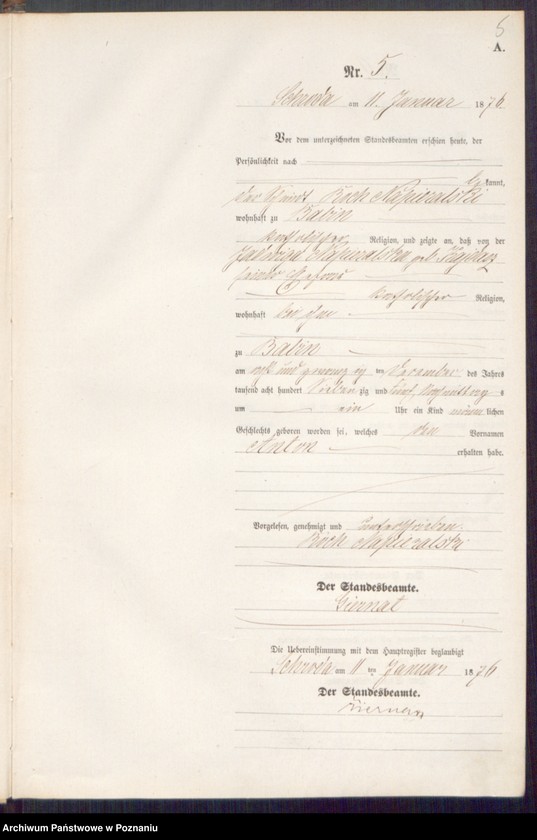 6
A.
Nr. 5.
Schroda am 11. Januar 1876
Vor dem unterzeichneten Standesbeamten erschien heute, der
Persönlichkeit nach
kannt,
der Roch Napieralski
wohnhaft zu Babin
katholischer Religion, und zeigte an, daß von der
Napieralska geb.
seiner Ehefrau
katholischer Religion,
wohnhaft bei ihm
zu Babin
am acht und zwanzig ten December des Jahrs
tausend acht hundert sieben zig und fünf, Nachmittags
um ein Uhr ein Kind männlichen
Geschlechts geboren worden sei, welches den Vornamen
Anton
erhalten habe.
Vorgelesen, genehmigt und unterschrieben
Roch Napieralski
Der Standesbeamte.
Die Uebereinstimmung mit dem Hauptregister beglaubigt
Schroda am 11 ten Januar 1876
Der Standesbeamte.
Archiwum Państwowe w Poznaniu